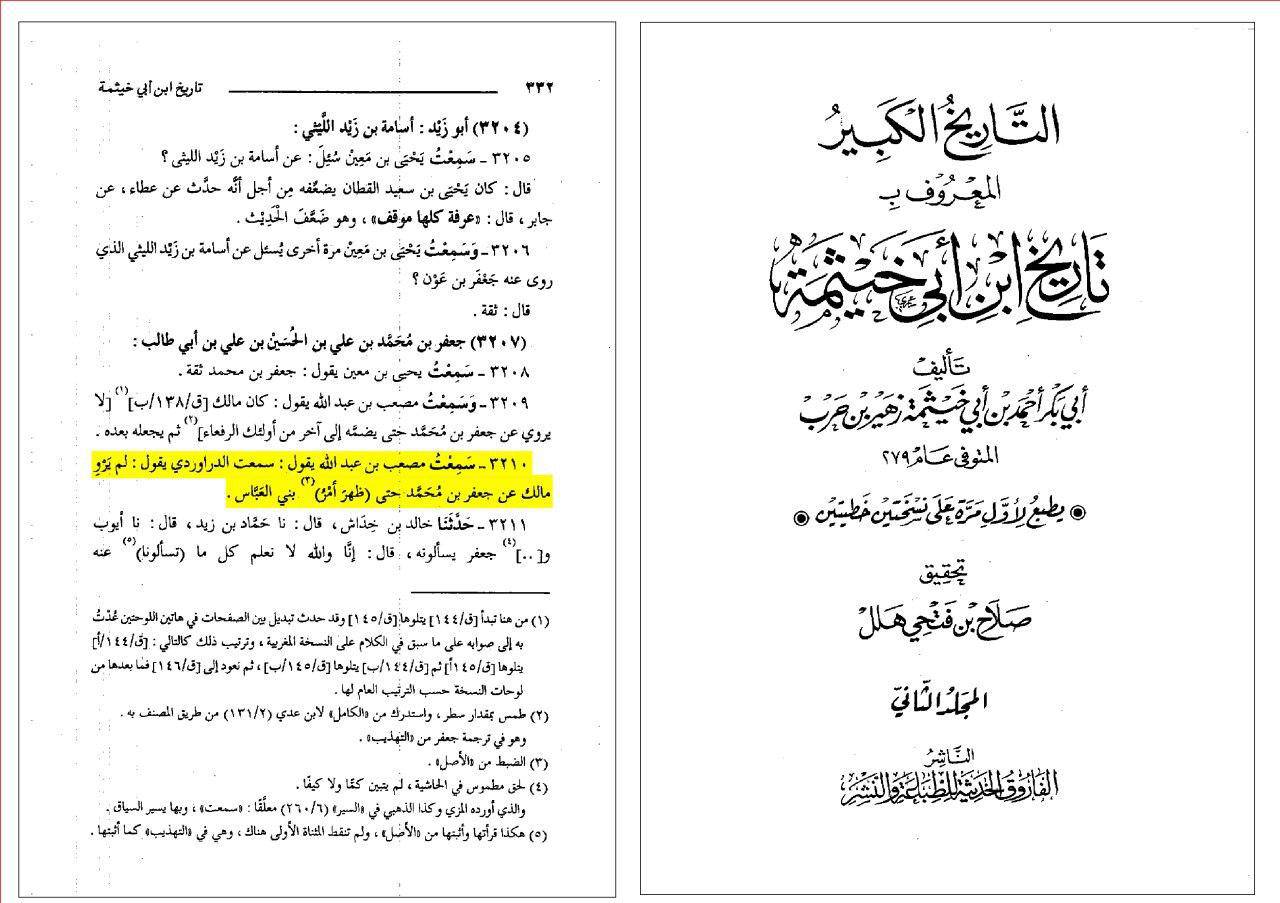 التَّارِيخُ الكَبِيرُ
المَعْرُوف بِ
تَارِيخِ ابْنِ أَبِي خَيْثَمَةَ
تَأليف
أَبِي بَكر أَحْمَد بْن أَبِي خَيْثَمَة زُهَيْر بْن حَرب
المتوفى عَام ٢٧٩
يطبع لأوَّل مَرّة عَلَى نسْخَتَين خَطيّتَين
تحقيق
صَلاح بْن فَتْحِي هَلَل
المجَلد الثَّاني
النَّاشِرُ
الفَارُوق الحَدِيثَة لِلطِّبَاعَة وَالنَّشْر
٣٣٢ تاريخ ابن أبي خيثمة
(٣٢٠٤) أبو زَيْد : أسامة بن زَيْد اللَّيْثي :
٣٢٠٥ ـ سَمِعْتُ يَحْيَى بن مَعِيْن سُئِلَ : عن أسامة بن زَيْد الليثى ؟
قال : كان يَحْيَى بن سعيد القطان يضعِّفه مِن أجل أنَّه حدَّث عن عطاء، عن
جابر ، قال : «عرفة كلها موقف» ، وهو ضَعَّفَ الْحَدِيْث .
٣٢٠٦ ـ وَسَمِعْتُ يَحْيَى بن مَعِيْن مرة أخرى يُسئل عن أسامة بن زَيْد الليثي الذي
روى عنه جَعْفَر بن عَوْن ؟
قال : ثقة .
(٣٢٠٧) جعفر بن مُحَمَّد بن علي بن الحُسَيْن بن علي بن أبي طالب :
٣٢٠٨ ـ سَمِعْتُ يحيى بن معين يقول : جعفر بن محمد ثقة .
٣٢٠٩ ـ وَسَمِعْتُ مصعب بن عبد الله يقول : كان مالك [ق/١٣٨/ب] (١) [لا
يروي عن جعفر بن مُحَمَّد حتى يضمَّه إلى آخر من أولئك الرفعاء] (٢) ثم يجعله بعده .
٣٢١٠ ـ سَمِعْتُ مصعب بن عبد الله يقول : سمعت الدراوردي يقول : لم يَرْوِ
مالك عن جعفر بن مُحَمَّد حتى (ظهرَ أمْرُ) (٣) بني العَبَّاس .
٣٢١١ ـ حَدَّثَنَا خالد بن خِدَاش، قال : نا حَمَّاد بن زيد، قال : نا أيوب
و[..] (٤) جعفر يسألونه ، قال : إنَّا والله لا نعلم كل ما (تسألونا) (٥) عنه
(١) من هنا تبدأ [ق/١٤٤] يتلوها [ق/١٤٥] وقد حدث تبديل بين الصفحات في هاتين اللوحتين عُدْتُ
به إلى صوابه على ما سبق في الكلام على النسخة المغربية ، وترتيب ذلك كالتالي : [ق/١٤٤/أ]
يتلوها [ق/١٤٥/أ] ثم [ق/١٤٤/ب] يتلوها [ق/١٤٥/ب] ، ثم نعود إلى [ق/١٤٦] فما بعدها من
لوحات النسخة حسب الترتيب العام لها .
(٢) طمس بمقدار سطر ، واستدرك من «الكامل» لابن عدي (١٣١/٢) من طريق المصنف به .
وهو في ترجمة جعفر من «التهذيب» .
(٣) الضبط من «الأصل» .
(٤) لحق مطموس في الحاشية ، لم يتبين كمًّا ولا كيفًا .
والذي أورده المزي وكذا الذهبي في «السير» (٢٦٠/٦) معلَّقًا : «سمعت» ، وبها يسير السياق .
(٥) هكذا قرأتها وأثبتها من «الأصل» ، ولم تنقط المثناة الأولى هناك ، وهي في «التهذيب» كما أثبتها .